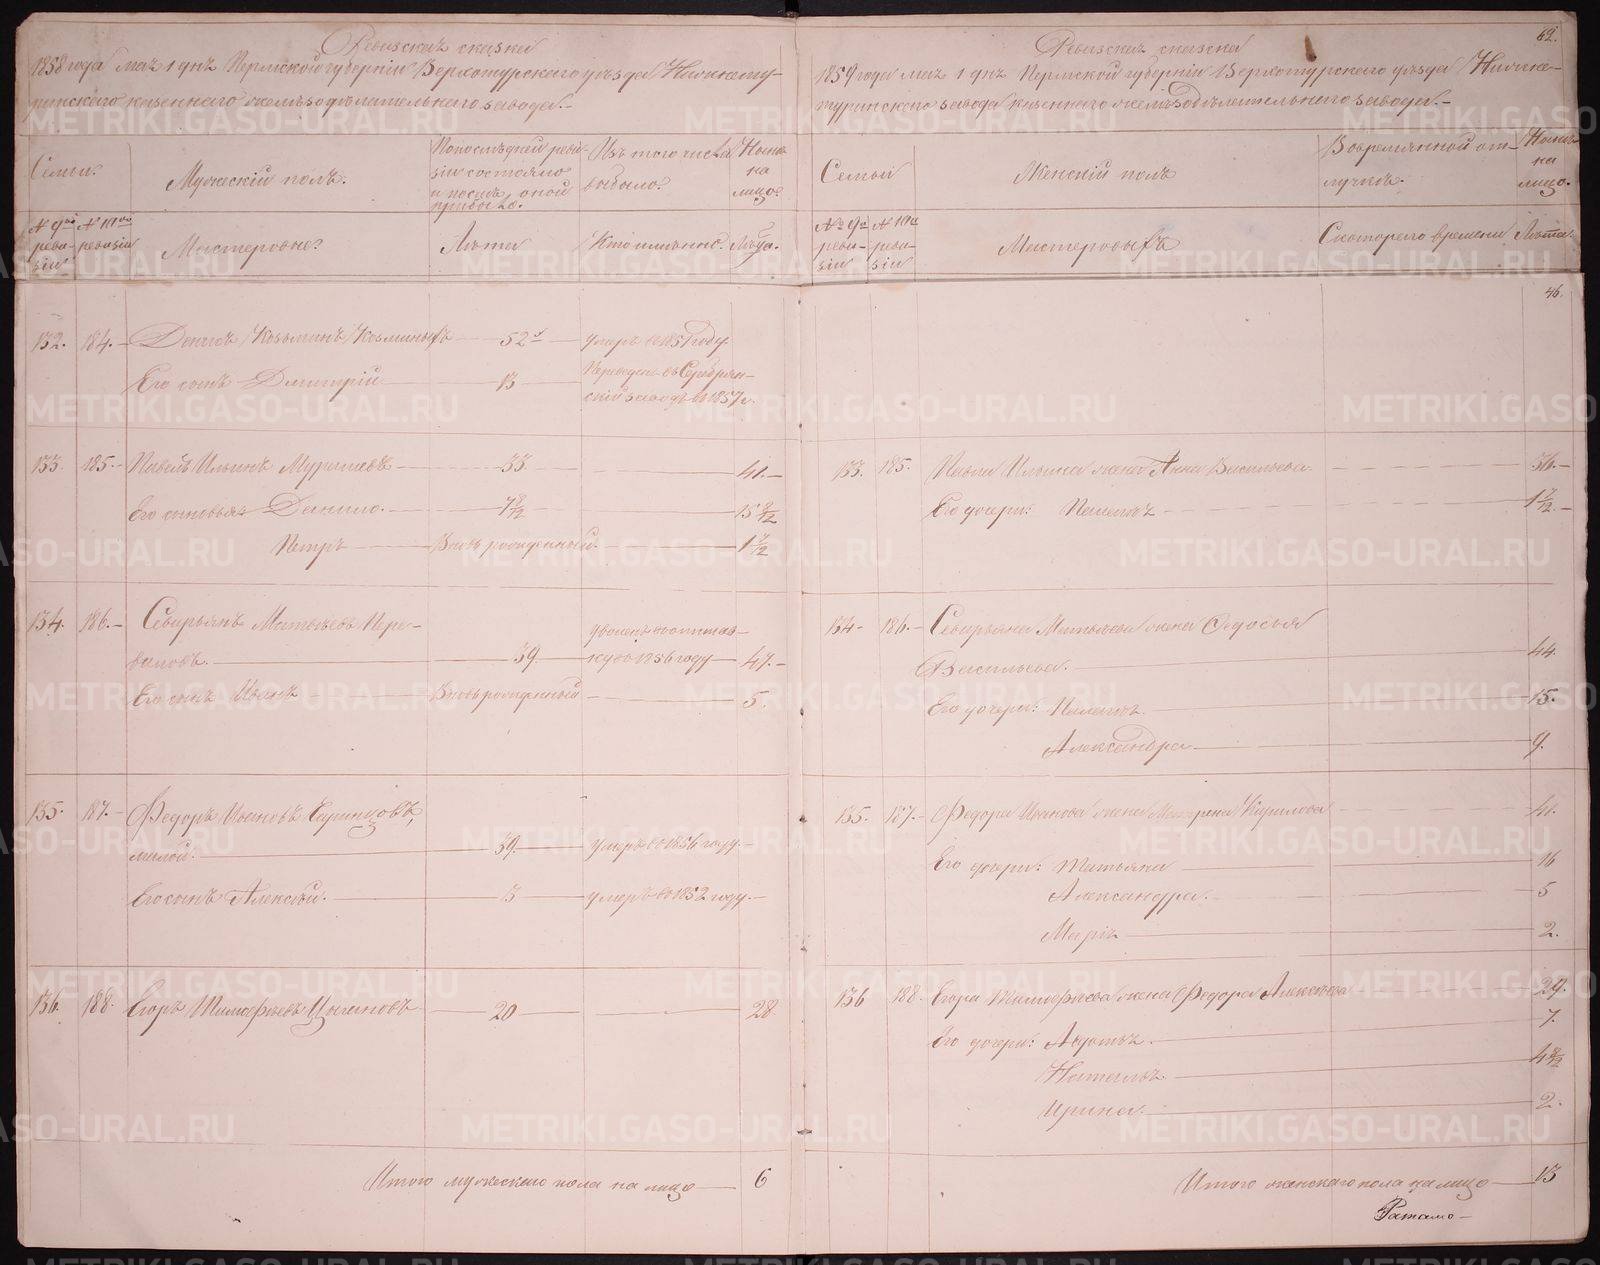 Ревизская сказка
1858 года мая 1 дня Пермской губернии Верхотурского уѣзда Нижнету-
ринскаго казеннаго желѣзодѣлательнаго завода.
Семьи.
Мужескій полъ.
По послѣдней реви-
зіи состояло
и послѣ оной
прибыло.
Изъ того числа
выбыло.
Нынѣ
на
лицо.
№ 9ой
реви-
зіи
№ 10ой
ревизіи
Мастеровые
Лѣта
Когда именно.
Лѣта.
132. 184. Денисъ Козьминъ Козьминыхъ 52 умеръ въ 1851 году
Его сынъ Дмитрій 13 Переведенъ въ Серебрян-
скій заводъ въ 1857 г.
133. 185. Павелъ Ильинъ Мурашевъ 33 41.
Его сыновья Данило. 7 8/12 15 8/12
Петръ Вновь рожденный. 1 7/12
134. 186. Северьянъ Матвѣевъ Пере-
валовъ. 39 уволенъ въ отстав-
ку въ 1856 году 47.
Его сынъ Иванъ Вновь рожденный 5.
135. 187. Федоръ Ивановъ
милой. 39. умеръ въ 1856 году.
Его сынъ Алексѣй. 3 умеръ въ 1852 году.
136. 188. Егоръ Тимофѣевъ Цыгановъ 20 28
Итого мужескаго пола на лицо 6
62.
Ревизская сказка
1859 года мая 1 дня Пермской губернии Верхотурского уѣзда Нижне-
туринскаго завода казеннаго желѣзодѣлательнаго завода.
Семьи
Женскій полъ
Во временной от-
лучкѣ.
Нынѣ
на
лицо.
№ 9й
реви-
зіи
№ 10й
реви-
зіи
Мастеровыхъ
Съ котораго времени
Лѣта.
46.
133. 185. Павла Ильина жена Анна Васильева. 36.
Его дочери: Пелагея 1 7/12
134 186. Северьяна Матвѣева жена Федосья
Васильева. 44.
Его дочери: Пелагея. 15.
Александра 9.
135. 187. Федора Иванова жена Матрена Кирилова 41.
Его дочери: Татьяна 16
Александра. 5
Марія 2.
136 188. Егора Тимофѣева жена Федора Алексѣева 29.
Его дочери: Авдотья. 7.
Наталья 4 8/12
Ирина. 2.
Итого женскаго пола на лицо 13